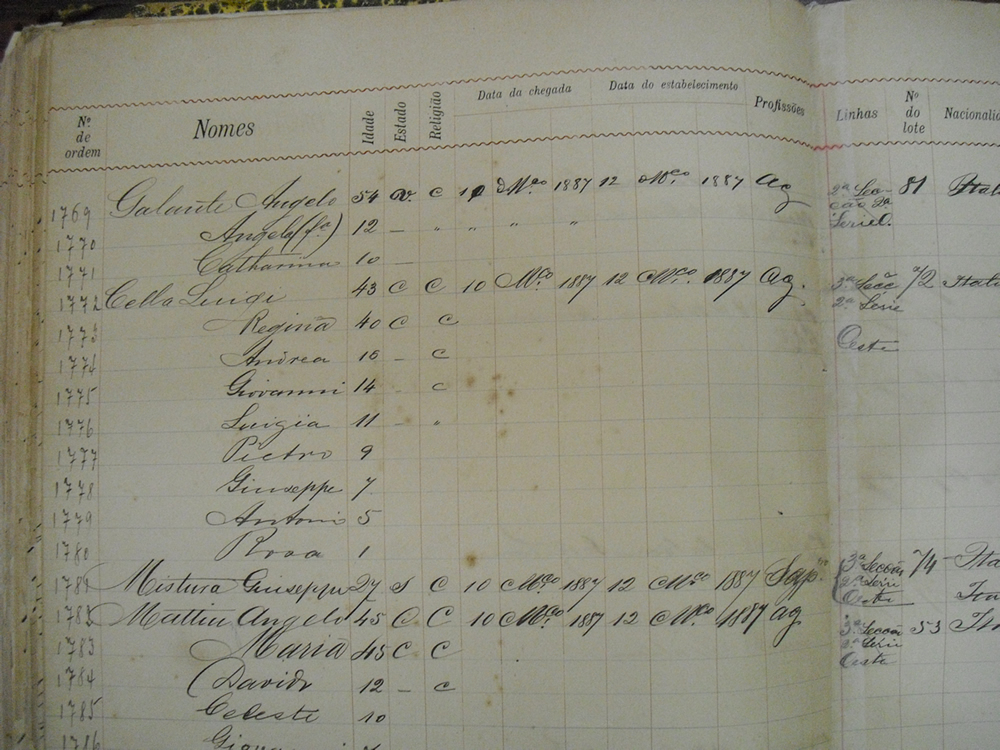 Nº de ordem Nomes Idade Estado Religião Data da chegada Data do estabelecimento Profissões Linhas Nº do lote Nacionalid
1769 Galante Angelo 54 V. C 10 Mço 1887 12 Mço 1887 Ag 2ª Sec- 81 Itali
ção 2ª
Serie O.
1770 Angela (fª) 12 — " " " "
1771 Catharina 10 —
1772 Cella Luigi 43 C C 10 Mço 1887 12 Mço 1887 Ag. 3ª Secc 72 Itali
2ª Serie
1773 Regina 40 C C Oeste
1774 Andrea 15 — C
1775 Giovanni 14 C
1776 Luigia 11 — "
1777 Pietro 9
1778 Giuseppe 7
1779 Antonio 5
1780 Rosa 1
1781 Mistura Giuseppe 27 S C 10 Mço 1887 12 Mço 1887 Sap 3ª Secção 74 Ita
2ª Serie
Oeste
1782 Angelo 45 C C 10 Mço 1887 12 Mço 1887 Ag 3ª Secção 53
2ª Serie
1783 Maria 45 C C Oeste
1784 David 12 — C
1785 Celeste 10
1786